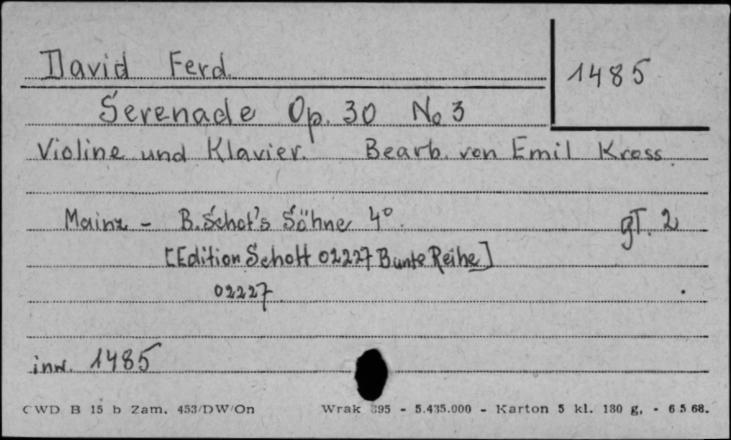 David Ferd.
1485
Serenade Op. 30 No 3
Violine und Klavier. Bearb. von Emil Kross.
Mainz - B. Schot's Söhne 4°.
gT. 2
[Edition Schott 02227 Bunte Reihe]
02227
inw. 1485
CWD B 15 b Zam. 453/DW/On Wrak 395 - 5.435.000 - Karton 5 kl. 180 g, - 6 5 68.